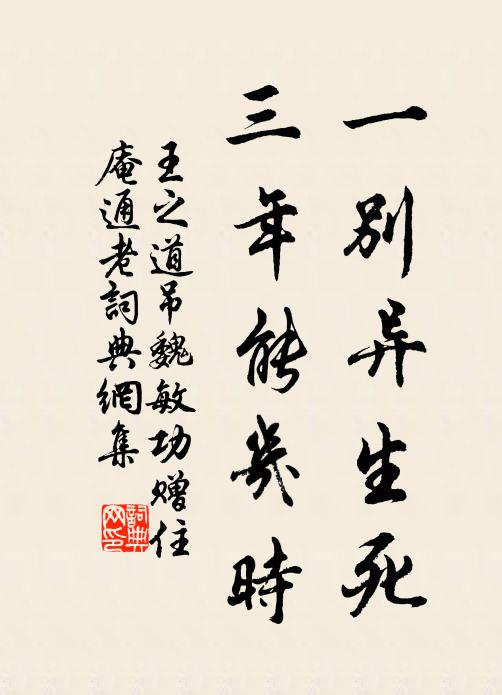 一别异生死
三年能幾時
王之道吊魏敏功赠住
庵通老詞典網集
詞典网印